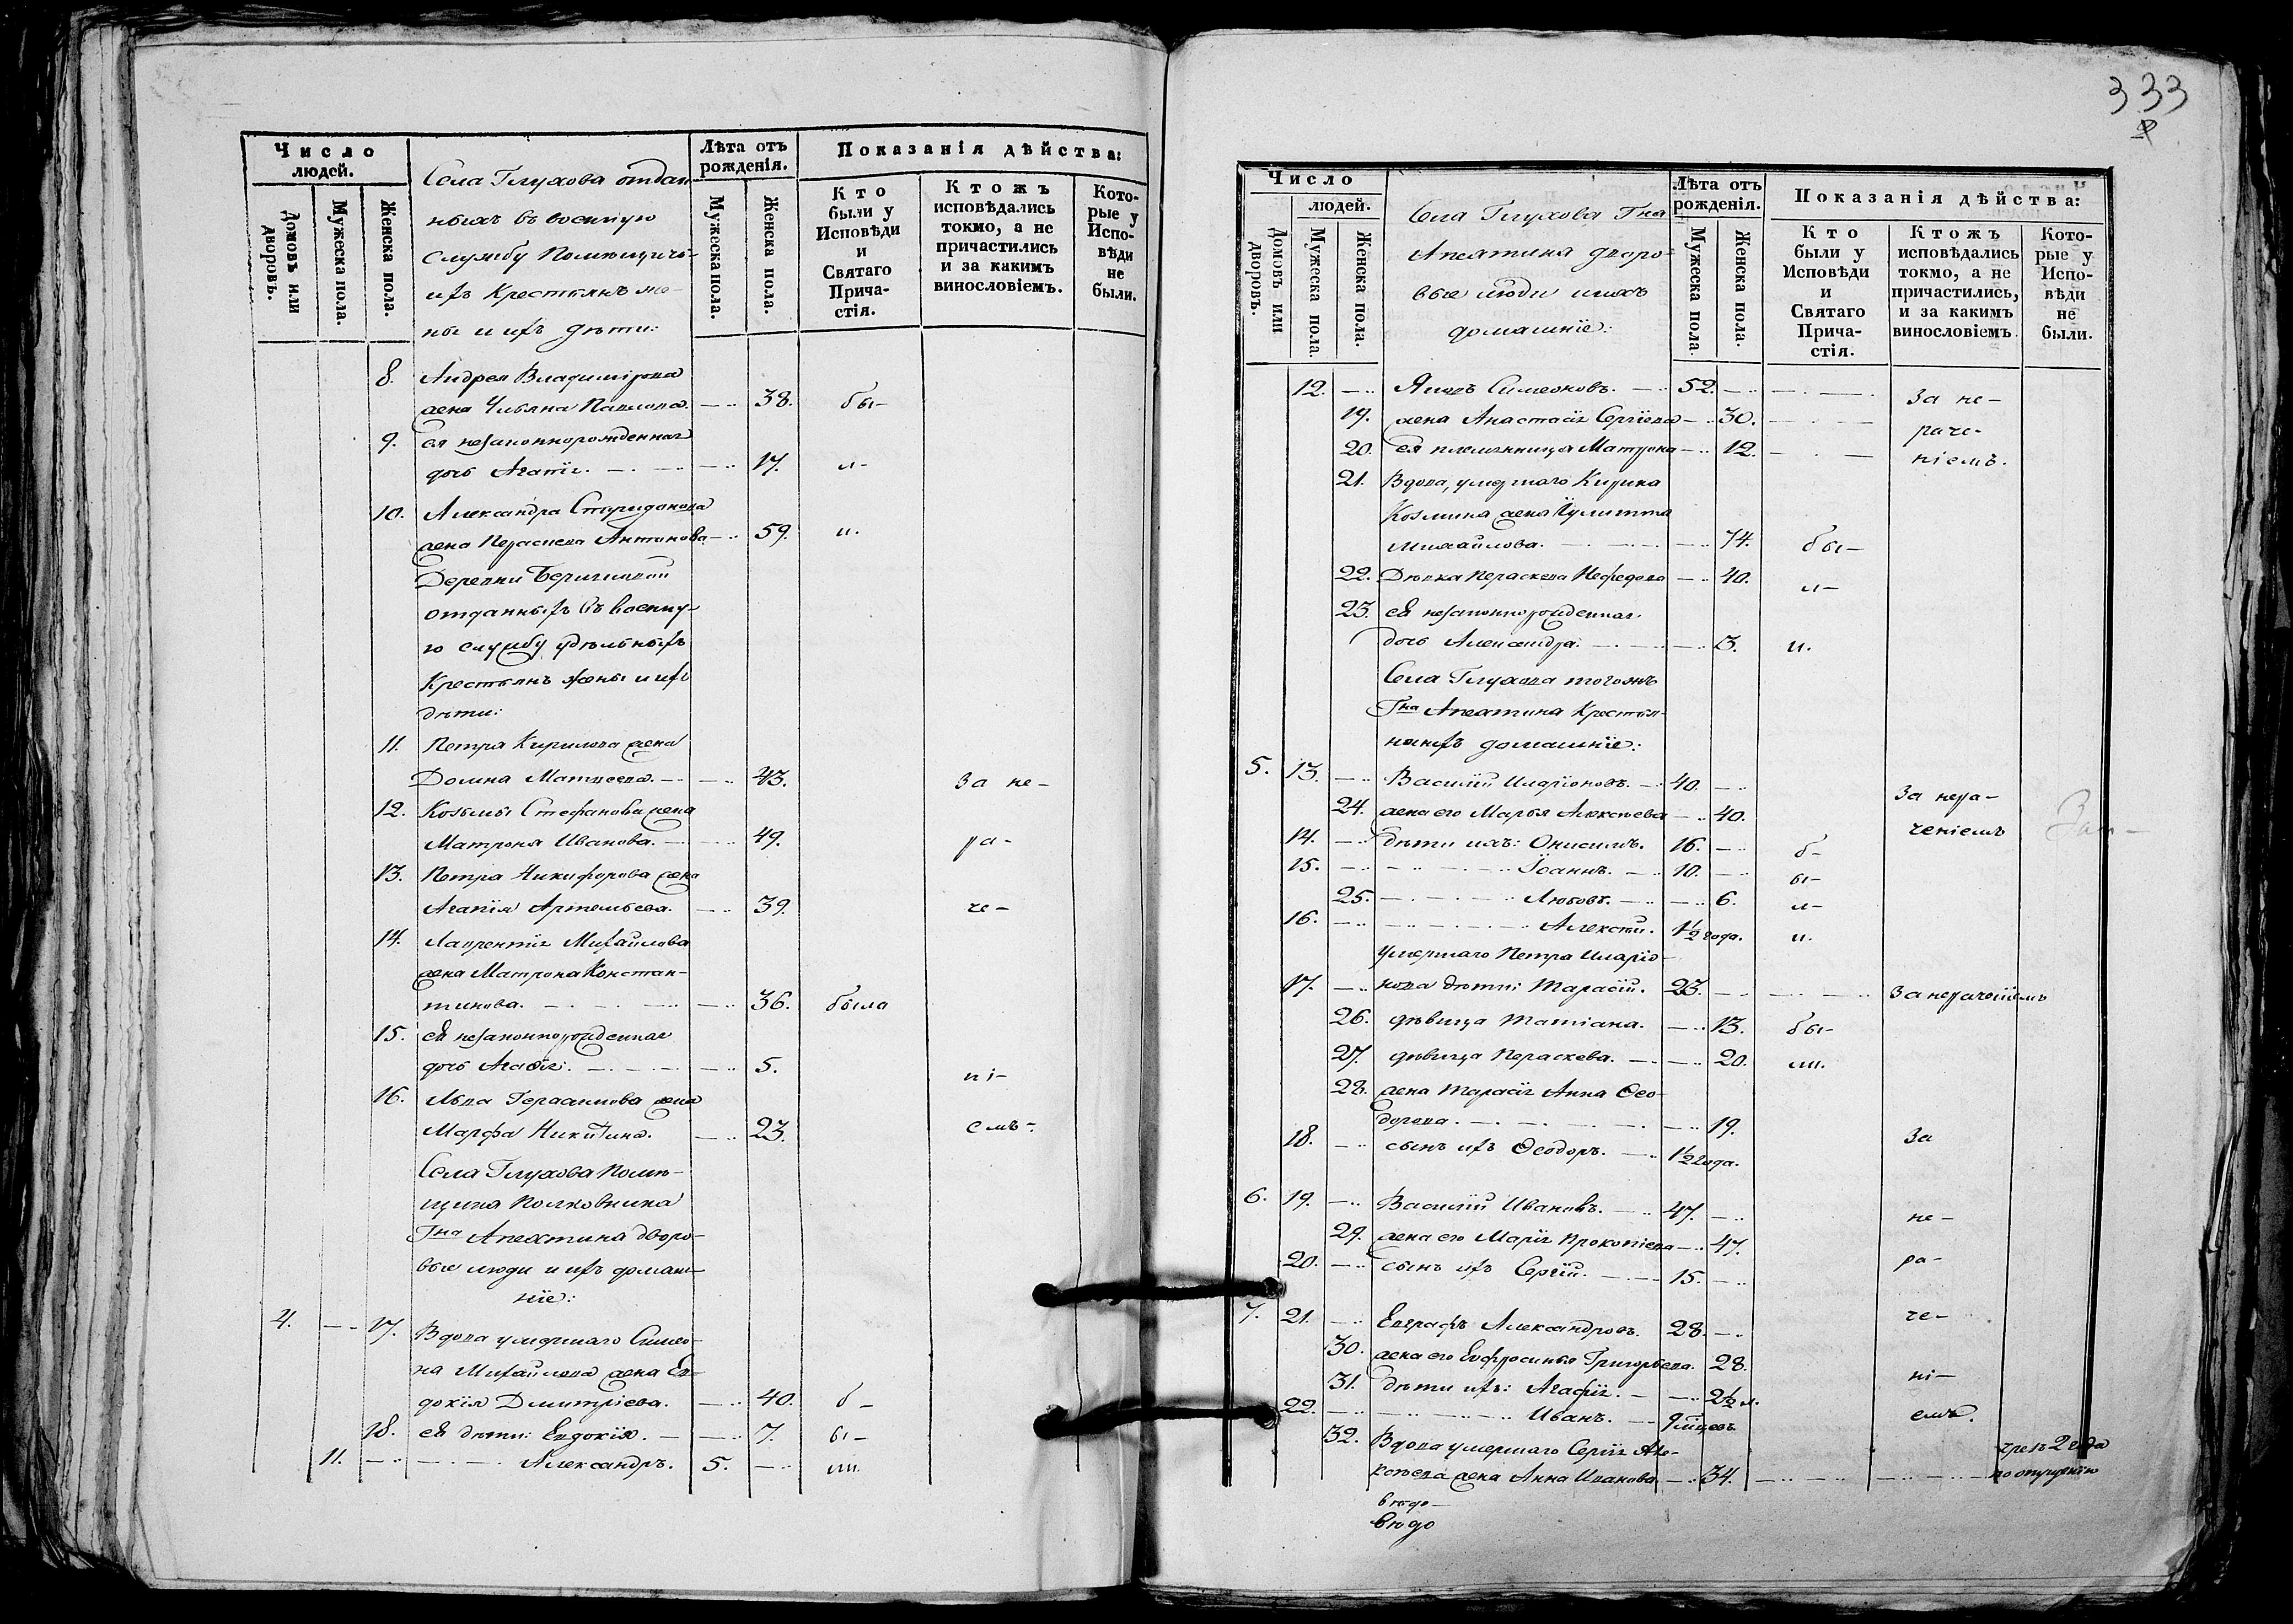 Число людей.
Домовъ или дворовъ.
Мужеска пола.
Женска пола.
Села Глухова отдан
ныхъ въ военную
службу Помѣщичь-
ихъ Крестьянъ же-
ны и ихъ дѣти:
Лѣта отъ рожденія.
Мужеска пола.
Женска пола.
Показанія дѣйства:
Кто были у Исповѣди и Святаго Прича- стія.
Ктожъ исповѣдались токмо, а не причастились и за какимъ винословіемъ.
Кото- рые у Испо- вѣди не были.
8. Андрея Владимірова
жена Ульяна Павлова. 38. бы-
9. ея незаконнорожденная
дочь Агапія. 17. л-
10. Александра Спиридонова
жена Параскева Антонова 59. и.
Деревни
отданныхъ въ военну-
ю службу удѣльныхъ
Крестьянъ жены и ихъ
дѣти:
11. Петра Кирилова жена
Домна Матвеева. 43. За не-
12. Козьмы Стефанова жена
Матрона Иванова. 49. ра-
13. Петра Никифорова жена
Агапія Артемьева. 39. че-
14. Лаврентія Михайлова
жена Матрона Констан-
тинова. 36. была
15. ея незаконнорожденная
дочь Агафія. 5. ні-
16. Льва Герасимова жена
Марфа Никитина. 23. емъ.
Села Глухова Помѣ-
щика Полковника
Гна Апехтина дворо-
вые люди и ихъ домаш-
ніе:
4. 17. Вдова умершаго Симео-
на Михайлова жена Ев-
докія Димитріева. 40. б-
18. ея дѣти: Евдокія. 7. ы-
11. Александръ. 5. ли.
333
Число людей.
Домовъ или дворовъ.
Мужеска пола.
Женска пола.
Села Глухова Гна
Апехтина дворо-
вые люди и ихъ
домашніе:
Лѣта отъ рожденія.
Мужеска пола.
Женска пола.
Показанія дѣйства:
Кто были у Исповѣди и Святаго Прича- стія.
Ктожъ исповѣдались токмо, а не причастились, и за какимъ винословіемъ.
Кото- рые у Испо- вѣди не были.
12. Яковъ Симеоновъ. 52. За не-
19. жена Анастасія Сергіева 30. раче-
20. ея племянница Матрона 12. ніемъ.
21. Вдова, умершаго Кирика
Козмина жена Іулитта
Михайлова. 74. бы-
22. Дѣвка Параскева Нефедова 40. л-
23. ея незаконнорожденная
дочь Александра. 3. и.
Села Глухова тогожъ
Гна Апехтина Крестья-
нинъ домашніе:
5. 13. Василій Иларіоновъ. 40. За нера-
24. жена его Марья Алексѣева 40. ченіемъ
14. дѣти ихъ: Онисимъ. 16. б-
15. Іоаннъ. 10. ы-
25. Любовь. 6. л-
16. Алексѣй. 1½ года. и.
умершаго Петра Иларіо-
17. нова дѣти: Тарасій. 23. За нераченіемъ
26. дѣвица Татіана. 13. бы-
27. дѣвица Параскева. 20. ли.
28. жена Тарасія Анна Ѳео-
дорова. 19. За
18. сынъ ихъ Ѳеодоръ. 1½ года.
6. 19. Василій Ивановъ. 47. не-
29. жена его Марія Прокопіева 47. ра-
20. сынъ ихъ Сергій. 15.
7. 21. Евграфъ Александровъ. 28. че-
30. жена его Евфросинья Григорьева. 28.
31. дѣти ихъ: Агафія. 2½ л. ні-
22. Иванъ. 9 мцевъ. емъ.
32. Вдова умершаго Сергія Але-
ксѣева жена Анна Иванова 34. чрезъ 2 года
по опущенію
вѣдо-
вѣдо